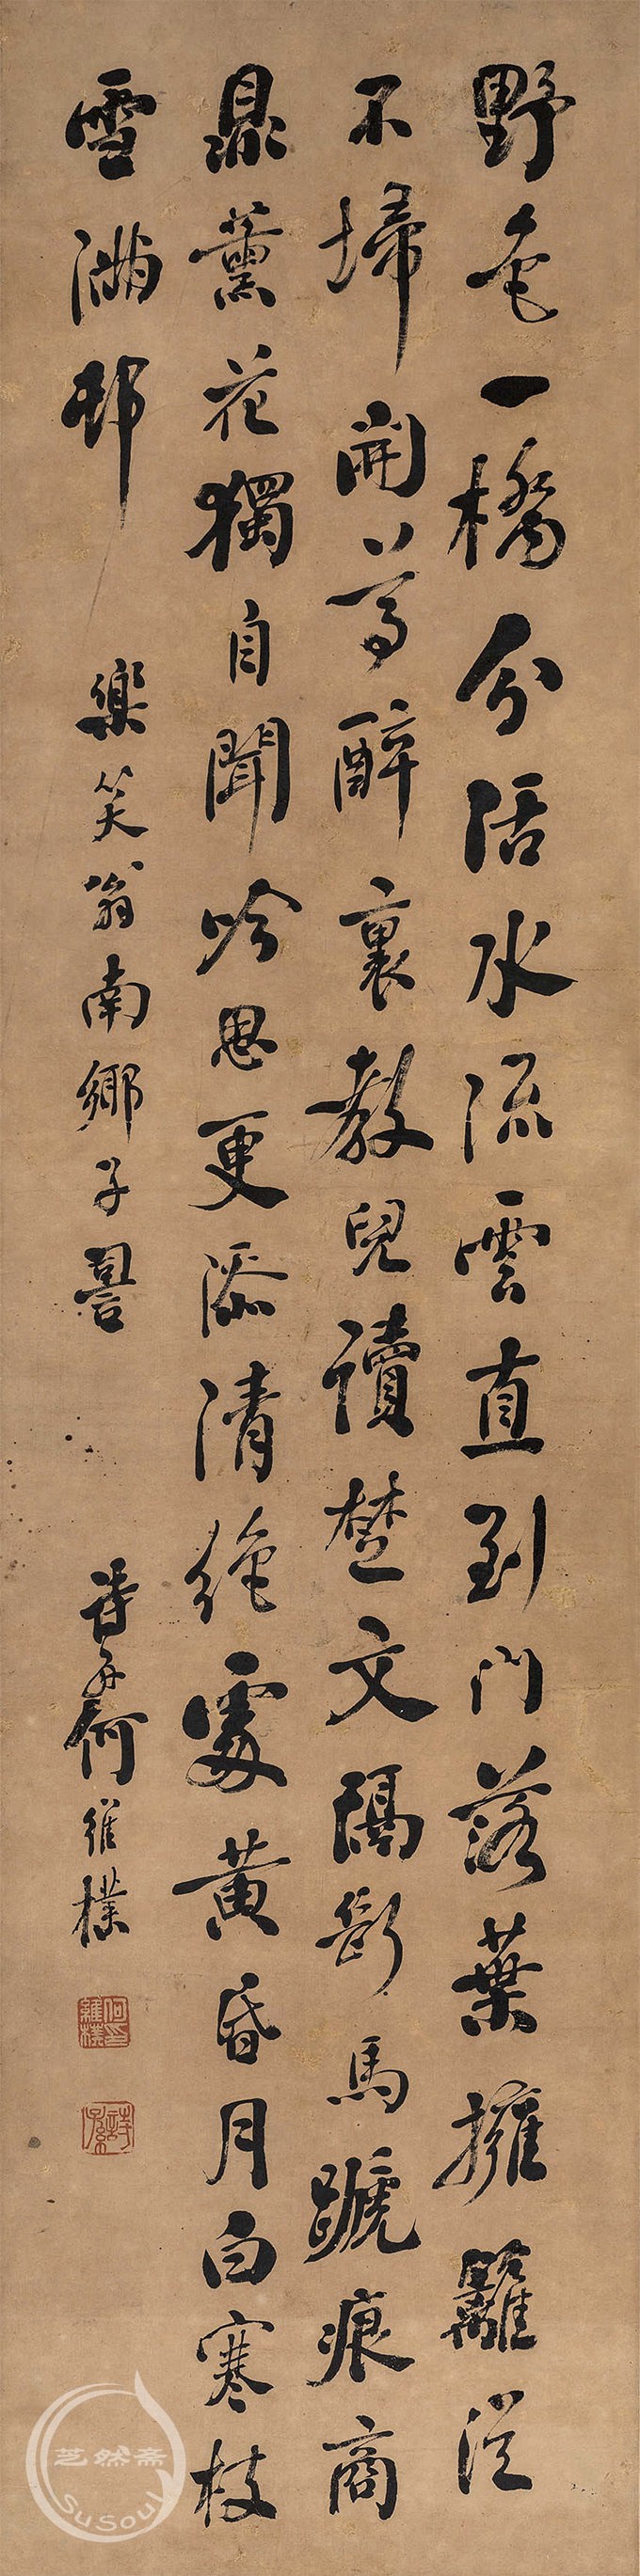 野色一橋分活水流雲直到門落葉擁籬從
不埽開尊醉裏教兒讀楚文隔斷馬蹏痕商
鼎薰花獨自聞吟思更添清絕處黃昏月白寒枝
雪滿邨
樂笑翁南鄉子詈
詩孫何維樸
何維樸印
詩孫
芝然斋
SuSoul